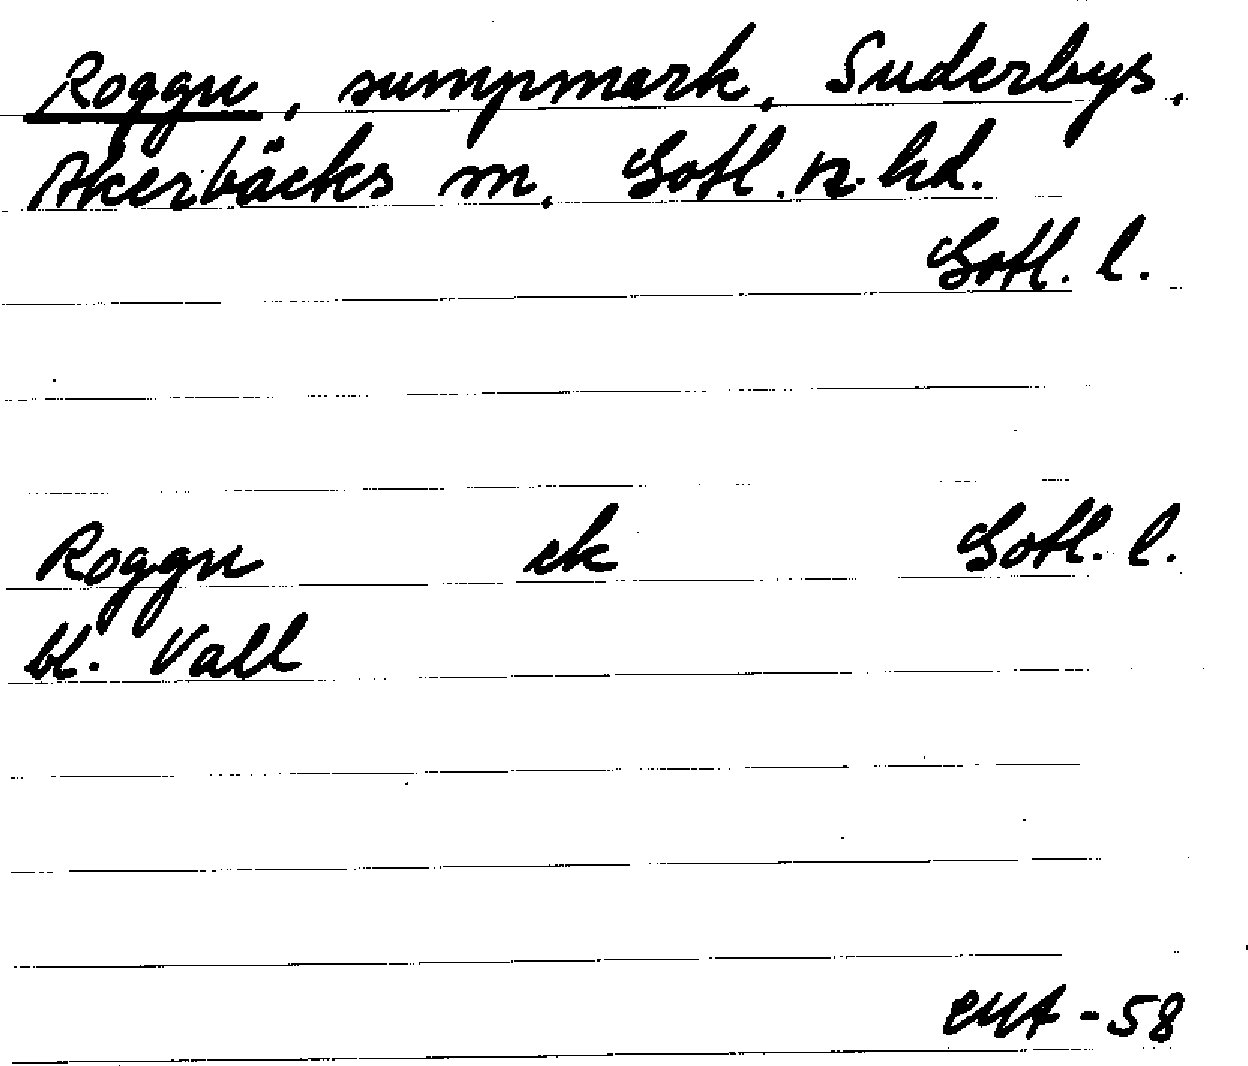 Roggu, sumpmark, Suderbys,
Akerbäcks sn, Gotl. n. hd.
Gotl. l.
Roggu ek Gotl. l.
bl. Vall
EMA - 58